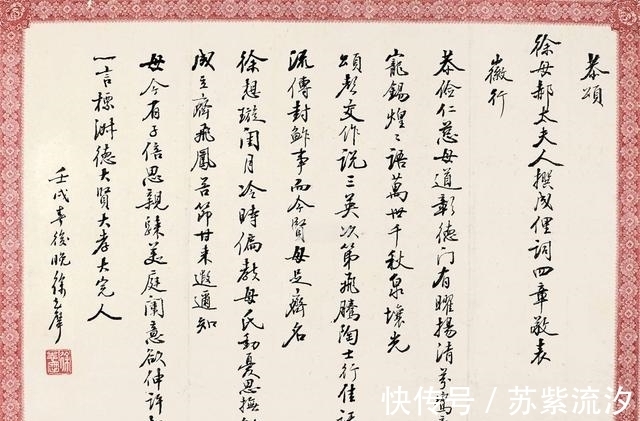 恭頌
徐母郝太夫人撰成俚詞四章敬表
徽行
恭儉仁慈母道彰德門有曜揚清芬鸞
寵錫煌〻語萬世千秋泉壤光
頌整文作說三英次第飛騰陶士行佳話
流傳封鮓事而今賢母足齊名
徐想璇閨月冷時偏教母氏動憂思撫
成立齊飛鳳苦節甘來遐邇知
母今有子倍思親
美庭闈意欲伸許
一言標淋德大賢大孝大完人
壬戌年後晚徐
快传号 / 苏紫流汐